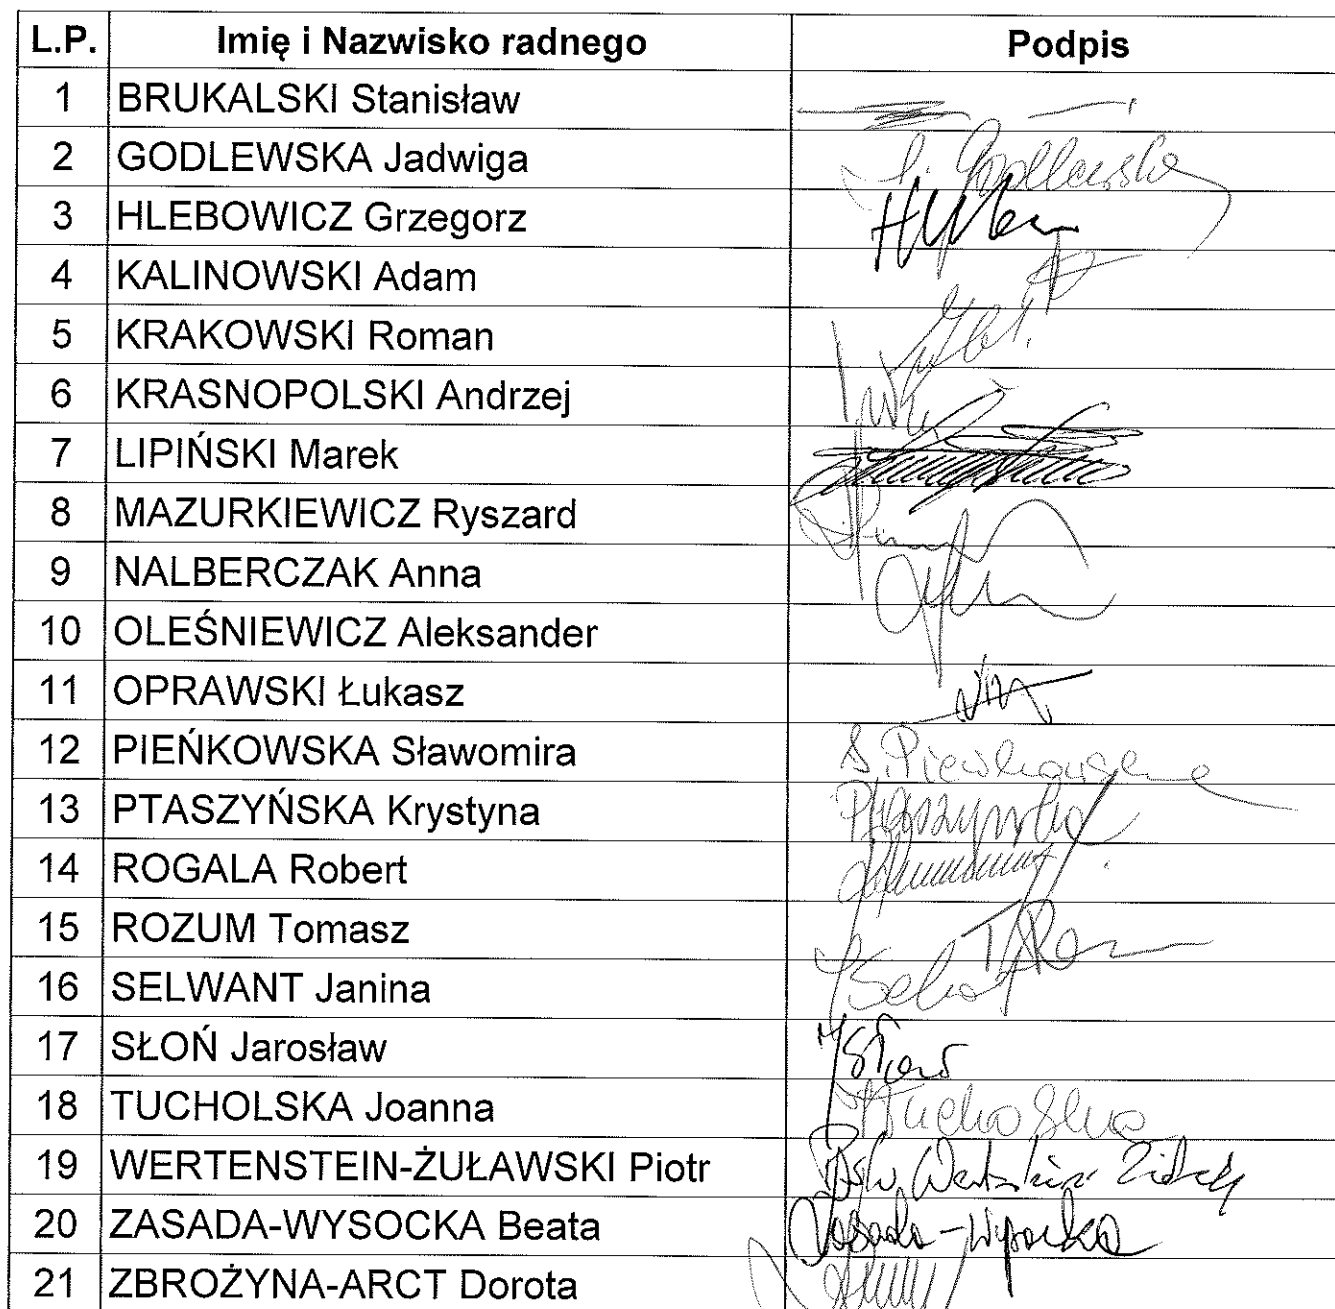 L.P. Imię i Nazwisko radnego Podpis
1 BRUKALSKI Stanisław
2 GODLEWSKA Jadwiga J. Godlewska
3 HLEBOWICZ Grzegorz
4 KALINOWSKI Adam
5 KRAKOWSKI Roman
6 KRASNOPOLSKI Andrzej
7 LIPIŃSKI Marek
8 MAZURKIEWICZ Ryszard
9 NALBERCZAK Anna
10 OLEŚNIEWICZ Aleksander
11 OPRAWSKI Łukasz
12 PIEŃKOWSKA Sławomira S. Pieńkowska
13 PTASZYŃSKA Krystyna Ptaszyńska
14 ROGALA Robert
15 ROZUM Tomasz
16 SELWANT Janina
17 SŁOŃ Jarosław
18 TUCHOLSKA Joanna Tucholska
19 WERTENSTEIN-ŻUŁAWSKI Piotr
20 ZASADA-WYSOCKA Beata Zasada-Wysocka
21 ZBROŻYNA-ARCT Dorota